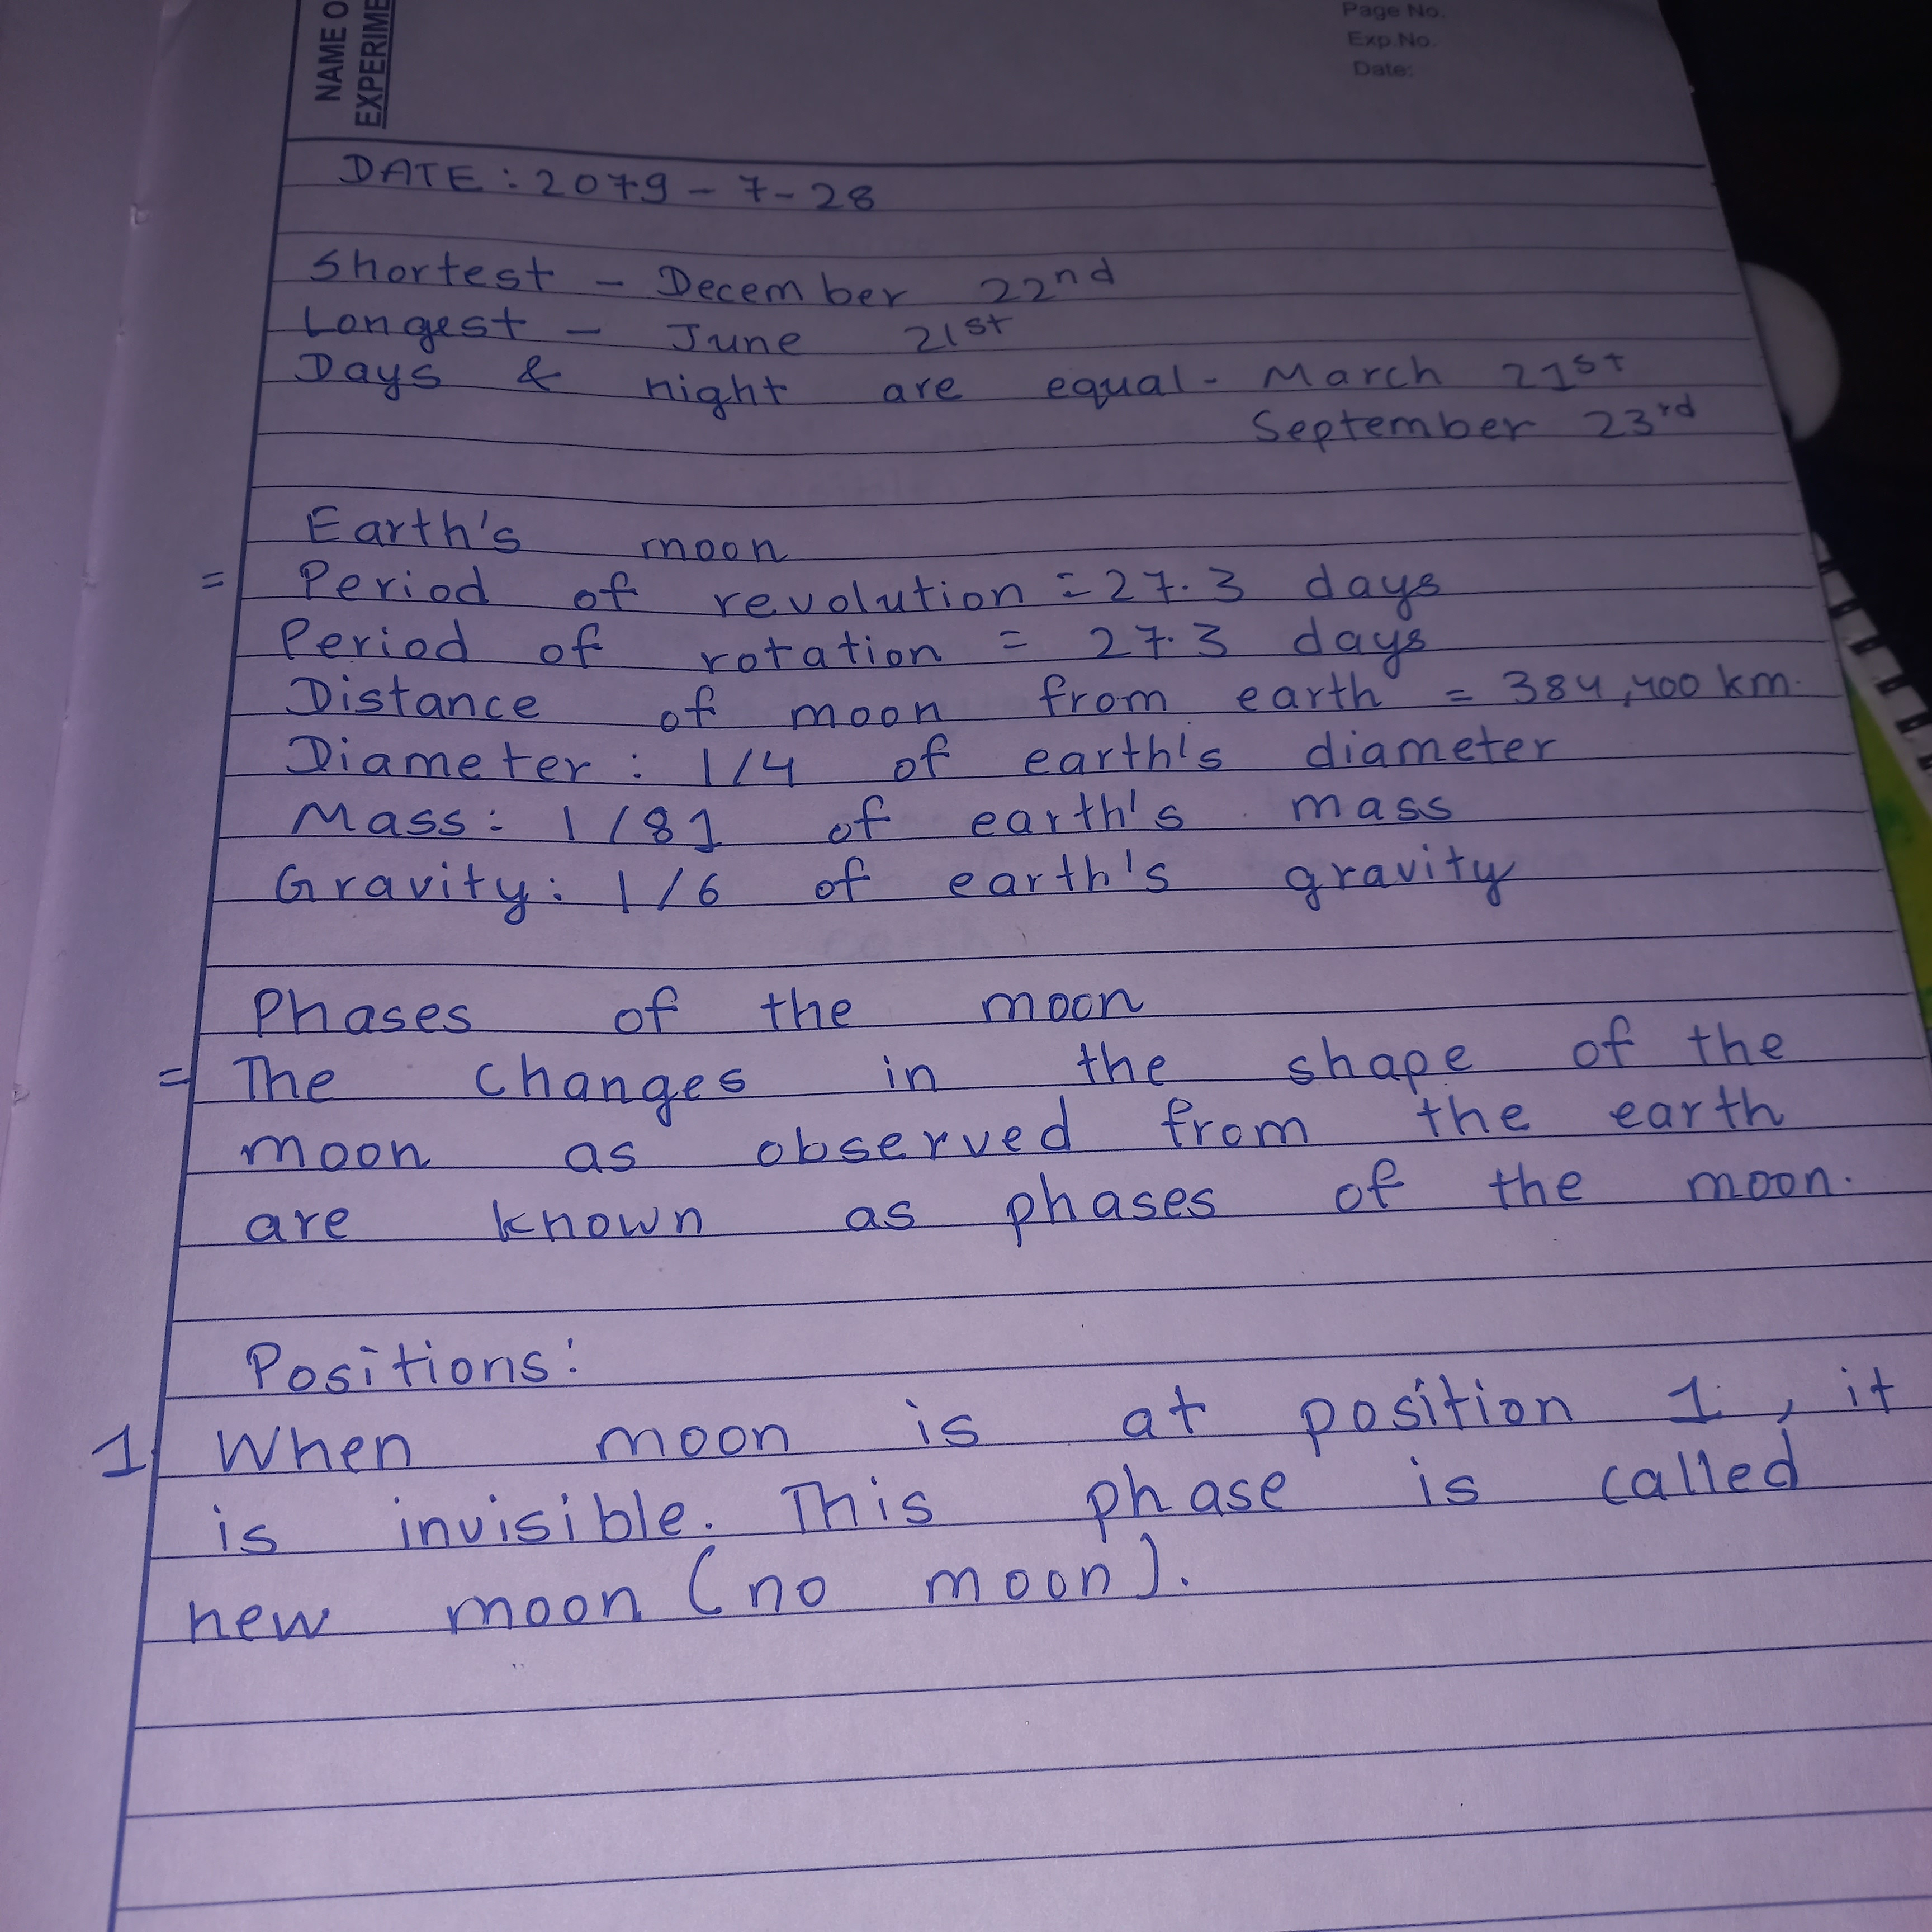 NAME O
EXPERIME
Page No.
Exp.No.
Date:
DATE : 2079 - 7 - 28
Shortest - December 22nd
Longest - June 21st
Days & night are equal - March 21st
September 23rd
Earth's moon
= Period of revolution = 27.3 days
Period of rotation = 27.3 days
Distance of moon from earth = 384,400 km.
Diameter : 1/4 of earth's diameter
Mass : 1/81 of earth's mass
Gravity : 1/6 of earth's gravity
Phases of the moon
= The changes in the shape of the
moon as observed from the earth
are known as phases of the moon.
Positions :
1. When moon is at position 1, it
is invisible. This phase is called
new moon (no moon).